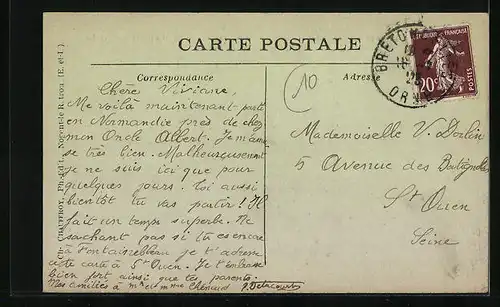 CARTE POSTALE
Correspondance
Adresse
10
RÉPUBLIQUE FRANÇAISE
20c
POSTES
BRETON
ORNE
Chère Viviane,
Me voilà maintenant parti
en Normandie près de chez
mon Oncle Albert. Je m'amu
se très bien. Malheureusement
je ne suis ici que pour
quelques jours. Toi aussi
bientôt tu vas partir! Il
fait un temps superbe. Ne
sachant pas si tu es encore
à Fontainebleau je t'adresse
cette carte à St Ouen. Je t'embrasse
bien fort ainsi que tes parents.
Mes amitiés à mr et mme Chénaud
Mademoiselle V. Dorlin
5 Avenue des Batignolles
St Ouen
Seine
CHAUFFROY, Ph.-édit., Nogent-le-Rotrou (E.-et-L.)